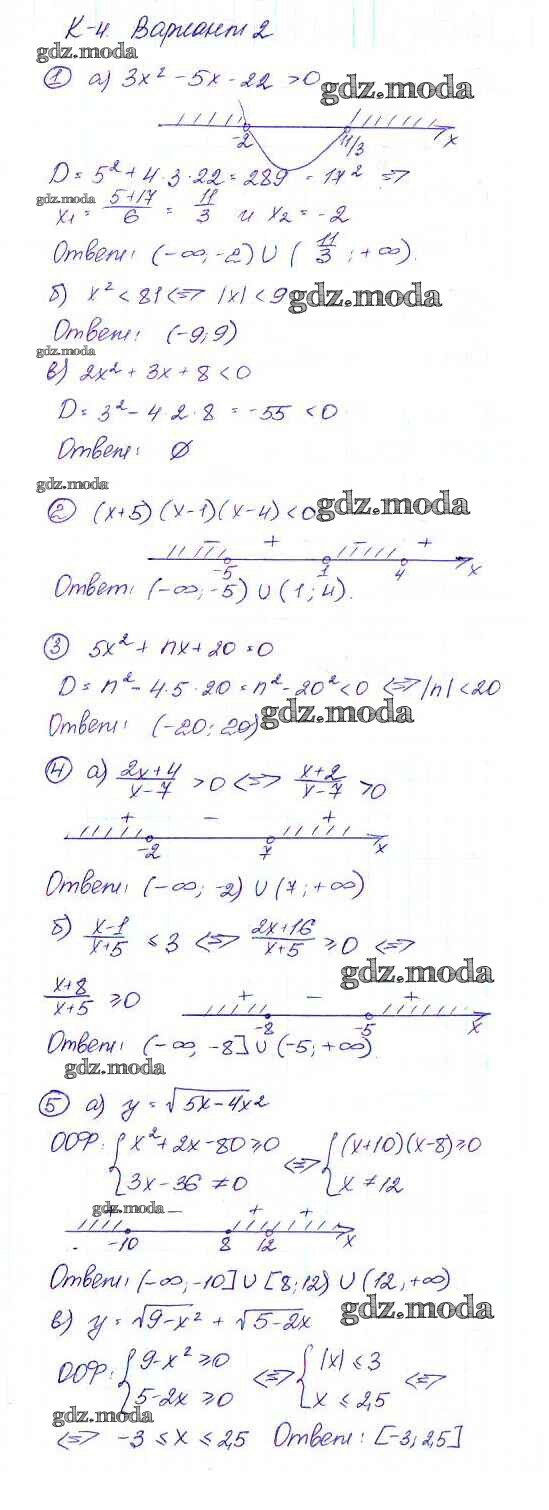 К-4. Вариант 2
gdz.moda
① а) 3x² - 5x - 22 > 0
gdz.moda
-2 11/3 x
D = 5² + 4·3·22 = 289 = 17² =>
gdz.moda
x₁ = (5+17)/6 = 11/3 и x₂ = -2
Ответ: (-∞; -2) ∪ (11/3; +∞).
б) x² < 81 <=> |x| < 9
gdz.moda
Ответ: (-9; 9)
gdz.moda
в) 2x² + 3x + 8 < 0
D = 3² - 4·2·8 = -55 < 0
Ответ: ∅
gdz.moda
② (x+5)(x-1)(x-4) < 0
gdz.moda
- + - +
-5 1 4 x
Ответ: (-∞; -5) ∪ (1; 4).
③ 5x² + nx + 20 = 0
D = n² - 4·5·20 = n² - 20² < 0 <=> |n| < 20
Ответ: (-20; 20)
gdz.moda
④ а) (2x+4)/(x-7) > 0 <=> (x+2)/(x-7) > 0
+ - +
-2 7 x
Ответ: (-∞; -2) ∪ (7; +∞)
б) (x-1)/(x+5) ≤ 3 <=> (2x+16)/(x+5) ≥ 0 <=>
gdz.moda
(x+8)/(x+5) ≥ 0
+ - +
-8 -5 x
Ответ: (-∞, -8] ∪ (-5; +∞)
gdz.moda
⑤ а) y = √5x-4x2
ООФ: { x² + 2x - 80 ≥ 0 <=> { (x+10)(x-8) ≥ 0
3x - 36 ≠ 0 x ≠ 12
gdz.moda
+ - + +
-10 8 12 x
Ответ: (-∞, -10] ∪ [8; 12) ∪ (12, +∞)
в) y = √9-x² + √5-2x
gdz.moda
ООФ: { 9-x² ≥ 0 <=> { |x| ≤ 3 <=>
5-2x ≥ 0 x ≤ 2,5
gdz.moda
<=> -3 ≤ x ≤ 2,5 Ответ: [-3; 2,5]